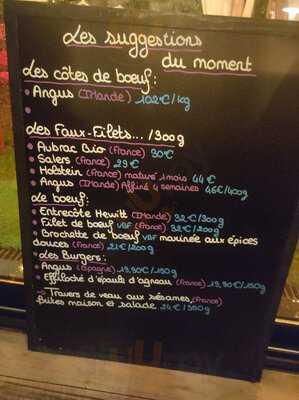 Les suggestions
du moment
Les côtes de boeuf:
• Angus (Irlande) 102€/kg
•
Les Faux-Filets... /300g
• Aubrac Bio (France) 30€
• Salers (France) 29€
• Holstein (France) maturé 1 mois 44€
• Angus (Irlande) Affiné 4 semaines 46€/400g
Le boeuf:
• Entrecôte Hewitt (Irlande) 32€/300g
• Filet de boeuf VBF (France) 32€/200g
• Brochette de boeuf VBF marinée aux épices
douces (France) 21€/200g
• Les Burgers:
• Angus (Espagne) 19,90€/180g
• Effiloché d'épaule d'agneau (France) 19,90€/180g
Travers de veau aux sésames, (France)
frites maison et salade 24€/350g